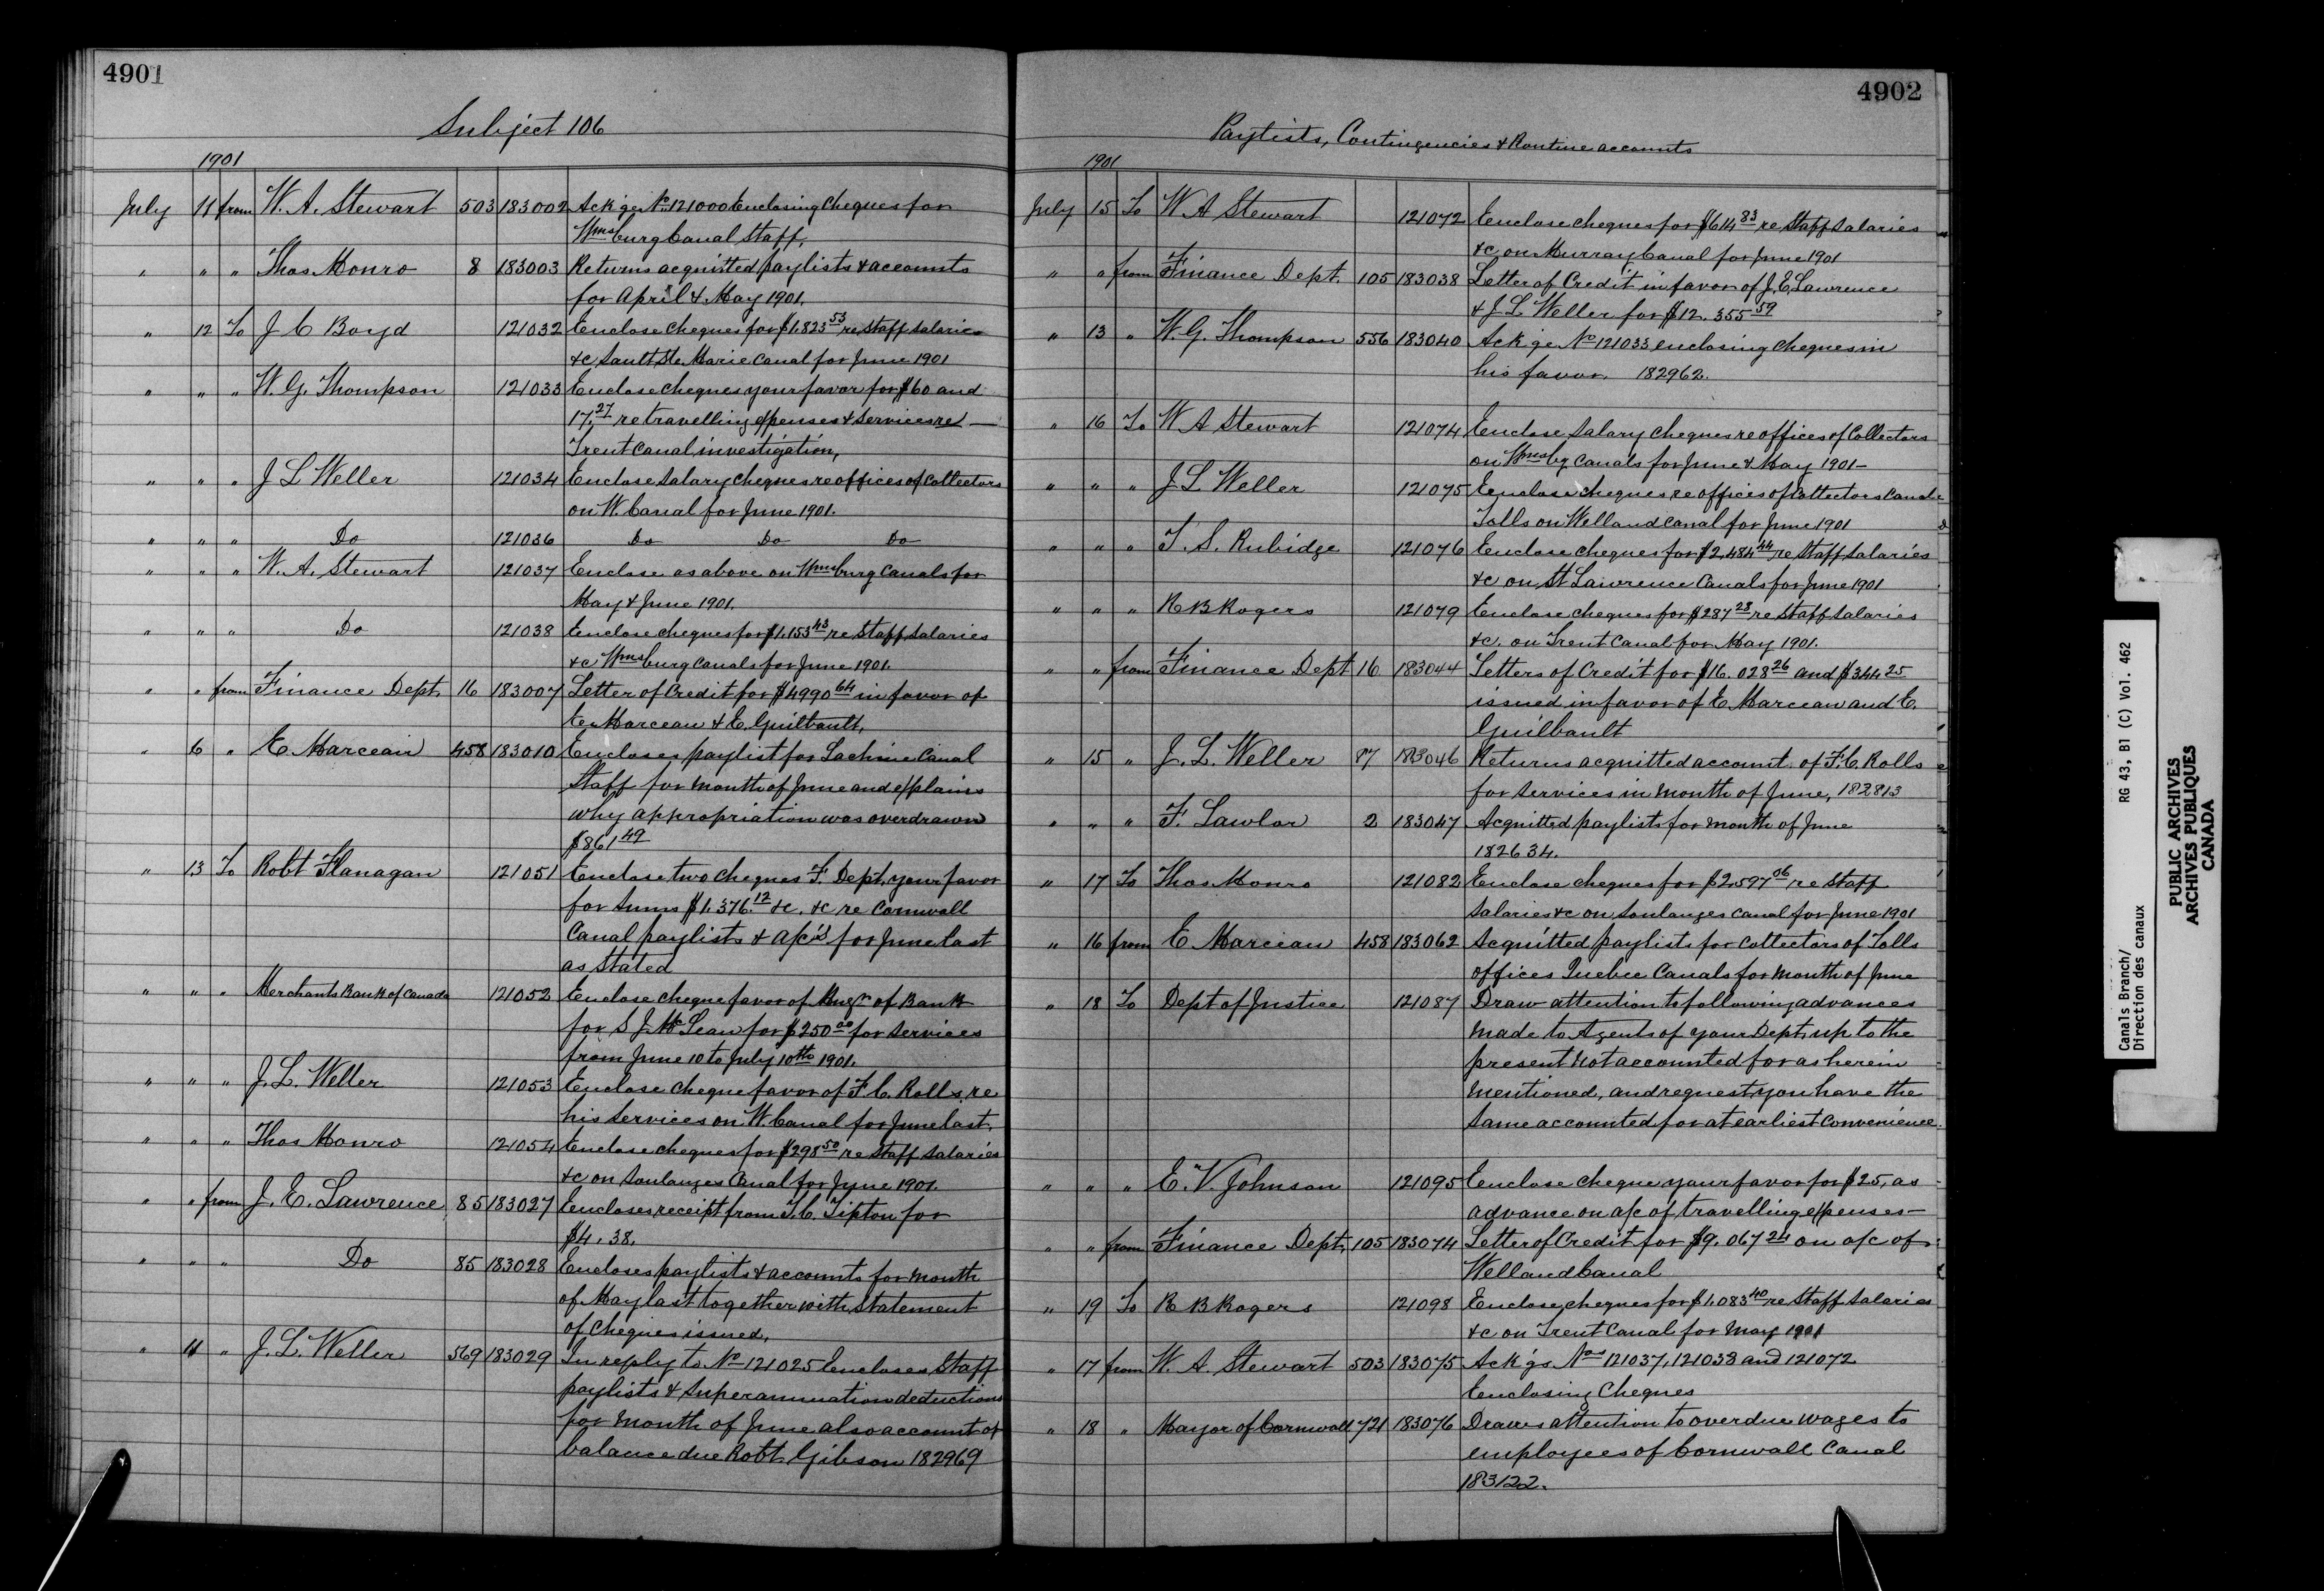 4901
Subject 106
1901
July 11 from W. A. Stewart 503 183002 Ack'ge No 121000 Enclosing Cheques for
Wmsburg Canal Staff.
" " " Thos Monro 8 183003 Returns acquitted paylists & accounts
for April & May 1901.
" 12 To J C Boyd 121032 Enclose cheques for $1,823 53 re Staff Salaries
&c Sault Ste. Marie Canal for June 1901
" " " W. G. Thompson 121033 Enclose cheques your favor for $60 and
17.27 re travelling expenses & services re
Trent Canal investigation,
" " " J L Weller 121034 Enclose Salary cheques re offices of Collectors
on W. Canal for June 1901.
" " " Do 121036 Do Do Do
" " " W. A. Stewart 121037 Enclose as above on Wmsburg Canals for
May & June 1901.
" " " Do 121038 Enclose cheques for $1,153 43 re Staff Salaries
&c Wmsburg Canals for June 1901.
" " from Finance Dept. 16 183007 Letter of Credit for $4990 64 in favor of
E. Marceau & E. Guilbault,
" 6 " E. Marceau 458 183010 Encloses paylist for Lachine Canal
Staff for month of June and explains
why appropriation was overdrawn
$861 49
" 13 To Robt Flanagan 121051 Enclose two cheques F. Dept. your favor
for sums $1,376.12 &c. &c re Cornwall
Canal paylists & a/c's for June last
as stated
" " " Merchants Bank of Canada 121052 Enclose cheque favor of Mngr of Bank
for S J. McLean for $250 00 for services
from June 10 to July 10th 1901.
" " " J. L. Weller 121053 Enclose cheque favor of F. C. Rolls, re
his services on W. Canal for June last.
" " " Thos Monro 121054 Enclose cheques for $298 50 re Staff salaries
&c on Soulanges Canal for June 1901.
" " from J. E. Lawrence 85 183027 Encloses receipt from T. C. Tipton for
$4.38.
" " " Do 85 183028 Encloses paylists & accounts for month
of May last together with Statement
of cheques issued,
" 11 " J. L. Weller 569 183029 In reply to No 121025 Encloses Staff
paylists & Superannuation deductions
for month of June also account of
balance due Robt. Gibson 182969
4902
Paylists, Contingencies & Routine accounts
1901
July 15 To W A Stewart 121072 Enclose cheques for $614 83 re Staff Salaries
&c on Murray Canal for June 1901
" " from Finance Dept. 105 183038 Letter of Credit in favor of J. E. Lawrence
& J L Weller for $12.355 59
" 13 " W. G. Thompson 556 183040 Ack'ge No 121033 enclosing cheques in
his favor. 182962.
" 16 To W A Stewart 121074 Enclose Salary cheques re offices of Collectors
on Wmsbg Canals for June & May 1901 –
" " " J L Weller 121075 Enclose cheques re offices of Collectors Canal
Tolls on Welland Canal for June 1901
" " " T. S. Rubidge 121076 Enclose cheques for $2,484 44 re Staff salaries
&c on St Lawrence Canals for June 1901
" " " R B Rogers 121079 Enclose cheques for $287 28 re Staff Salaries
&c. on Trent Canal for May 1901.
" " from Finance Dept 16 183044 Letters of Credit for $16.028 26 and $344 25
issued in favor of E Marceau and E.
Guilbault
" 15 " J. L. Weller 87 183046 Returns acquitted account of F. C. Rolls
for services in month of June, 182813
" " " F. Lawlor 2 183047 Acquitted paylists for month of June
182634.
" 17 To Thos Monro 121082 Enclose cheques for $2,597 06 re Staff
Salaries &c on Soulanges Canal for June 1901
" 16 from E Marceau 458 183062 Acquitted paylists for Collectors of Tolls
offices Quebec Canals for month of June
" 18 To Dept of Justice 121087 Draw attention to following advances
made to Agents of your Dept. up to the
present not accounted for as herein
mentioned, and request you have the
same accounted for at earliest convenience.
" " " E. V. Johnson 121095 Enclose cheque your favor for $25, as
advance on a/c of travelling expenses –
" " from Finance Dept. 105 183074 Letter of Credit for $9.067 24 on a/c of
Welland Canal
" 19 To R B Rogers 121098 Enclose cheques for $1,083 40 re Staff Salaries
&c on Trent Canal for May 1901
" 17 from W. A. Stewart 503 183075 Ack'gs Nos 121037, 121038 and 121072
Enclosing Cheques
" 18 " Mayor of Cornwall 721 183076 Draws attention to overdue wages to
employees of Cornwall Canal
183122.
Canals Branch/
Direction des canaux
RG 43, B1 (C) Vol. 462
PUBLIC ARCHIVES
ARCHIVES PUBLIQUES
CANADA